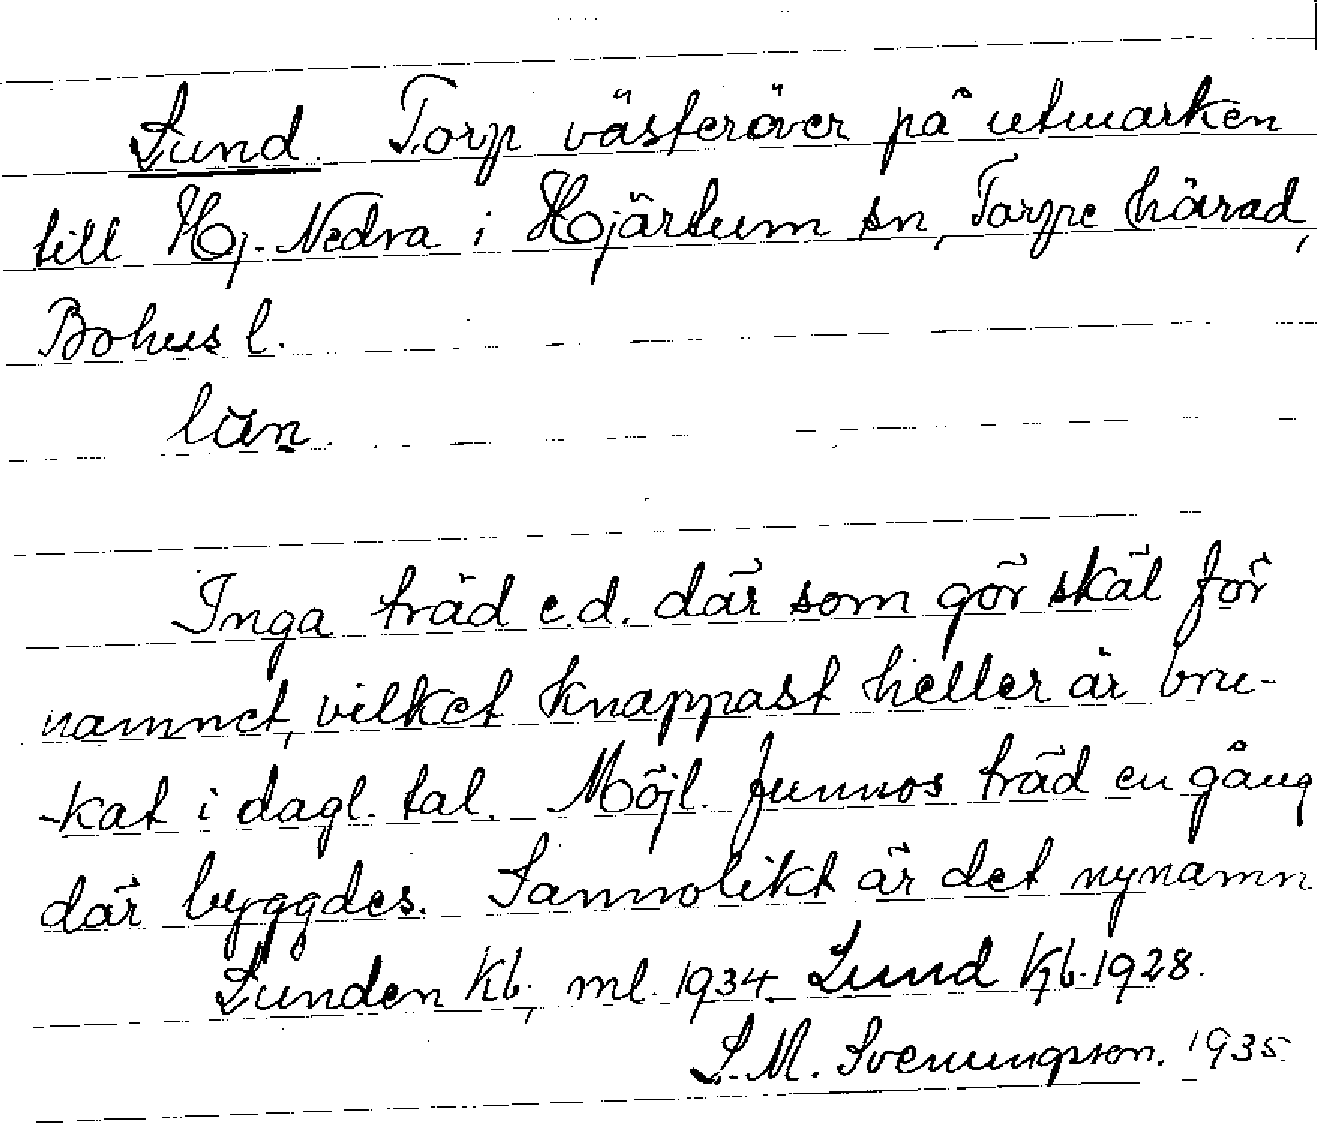 Lund. Torp västeröver på utmarken
till Hj. Nedra i Hjärtum sn, Torpe härad,
Bohus l.
län
Inga träd e.d. där som gör skäl för
namnet, vilket knappast heller är bru-
-kat i dagl. tal. Möjl. funnos träd en gång
där byggdes. Sannolikt är det nynamn
Lunden Kb, ml. 1934 Lund Kb. 1928.
S. M. Svenungsson. 1935